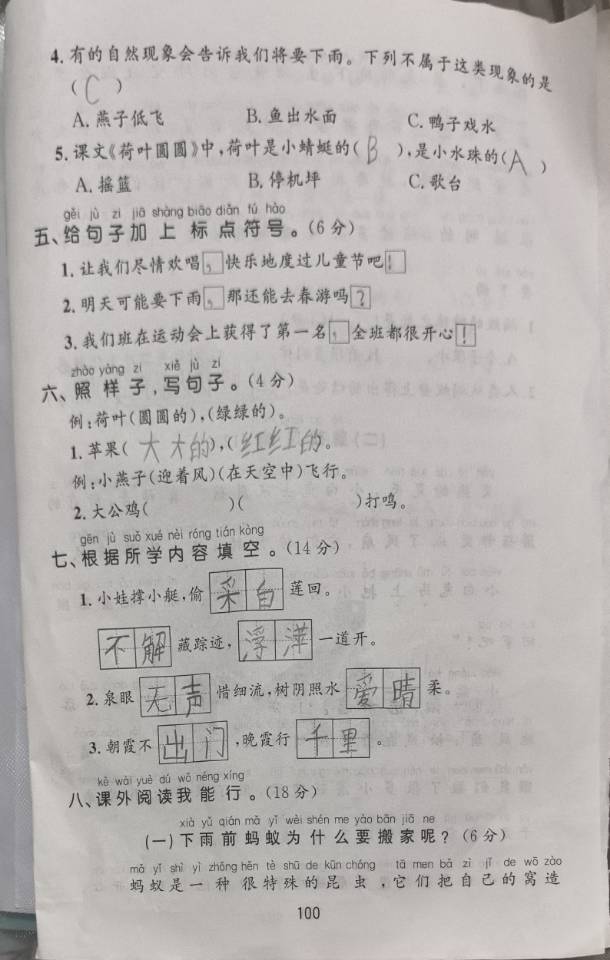 4. 有的自然现象会告诉我们将要下雨。下列不属于这类现象的是
( C )
A. 燕子低飞 B. 鱼出水面 C. 鸭子戏水
5. 课文《荷叶圆圆》中,荷叶是小蜻蜓的( B ),是小水珠的( A )
A. 摇篮 B. 停机坪 C. 歌台
gěi jù zi jiā shàng biāo diǎn fú hào
五、给句子加上标点符号。(6分)
1. 让我们尽情欢唱,快乐地度过儿童节吧!
2. 明天可能要下雨,那还能去春游吗?
3. 我们班在运动会上获得了第一名,全班都很开心!
zhào yàng zi xiě jù zi
六、照样子,写句子。(4分)
例:荷叶(圆圆的),(绿绿的)。
1. 苹果(大大的),(红红的)。
例:小燕子(迎着风)(在天空中)飞行。
2. 大公鸡( )( )打鸣。
gēn jù suǒ xué nèi róng tián kòng
七、根据所学内容填空。(14分)
1. 小娃撑小艇,偷采白莲回。
不解藏踪迹,浮萍一道开。
2. 泉眼无声惜细流,树阴照水爱晴柔。
3. 朝霞不出门,晚霞行千里。
kè wài yuè dú wǒ néng xíng
八、课外阅读我能行。(18分)
xià yǔ qián mǎ yǐ wèi shén me yào bān jiā ne
(一)下雨前蚂蚁为什么要搬家呢?(6分)
mǎ yǐ shì yì zhǒng hěn tè shū de kūn chóng tā men bǎ zì jǐ de wō zào
蚂蚁是一种很特殊的昆虫,它们把自己的窝造
100